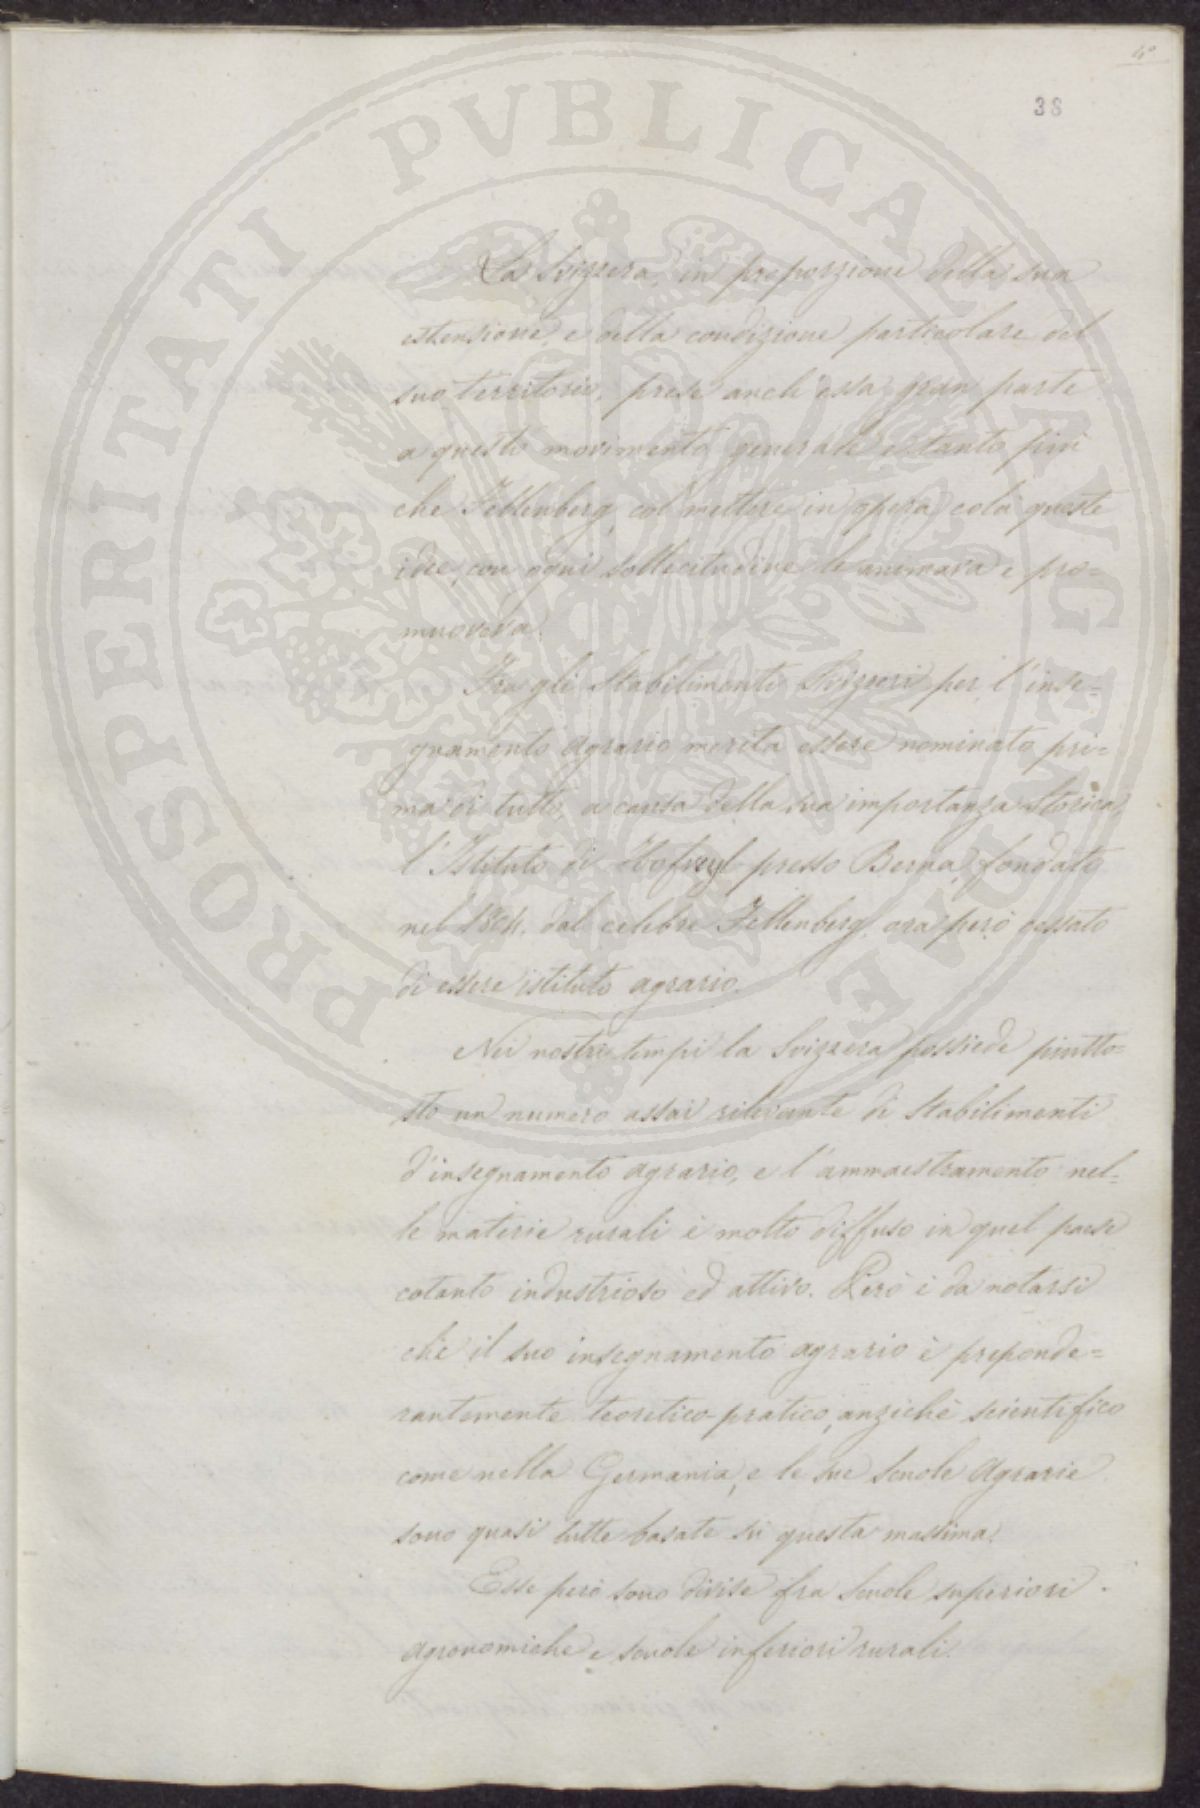 4°
38
La Svizzera, in proporzione della sua
estensione, e della condizione particolare del
suo territorio, prese anch'essa gran parte
a questo movimento generale e tanto più
che Fellenberg, col mettere in opera colà queste
idee, con ogni sollecitudine le animava e pro=
muoveva.
Fra gli Stabilimenti Svizzeri per l'inse=
gnamento agrario merita essere nominato pri=
ma di tutto, a causa della sua importanza storica,
l'Istituto di Hofwyl presso Berna, fondato
nel 1804. dal celebre Fellenberg, ora però cessato
di essere istituto agrario.
Nei nostri tempi la Svizzera possiede piutto=
sto un numero assai rilevante di Stabilimenti
d'insegnamento agrario, e l'ammaestramento nel=
le materie rurali è molto diffuso in quel paese
cotanto industrioso ed attivo. Però è da notarsi
che il suo insegnamento agrario è preponde=
rantemente teoretico-pratico, anzichè scientifico
come nella Germania, e le sue scuole agrarie
sono quasi tutte basate su questa massima.
Esse però sono divise fra scuole superiori
agronomiche e scuole inferiori rurali.
PROSPERITATI PVBLICAE AVGENDAE